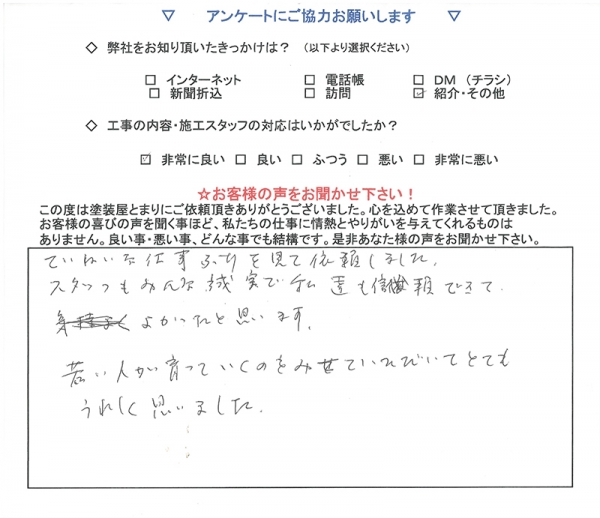 ▽ アンケートにご協力お願いします ▽
◇ 弊社をお知り頂いたきっかけは？ (以下より選択ください)
□ インターネット □ 電話帳 □ DM (チラシ)
□ 新聞折込 □ 訪問 ☑ 紹介・その他
◇ 工事の内容・施工スタッフの対応はいかがでしたか？
☑ 非常に良い □ 良い □ ふつう □ 悪い □ 非常に悪い
☆お客様の声をお聞かせ下さい！
この度は塗装屋とまりにご依頼頂きありがとうございました。心を込めて作業させて頂きました。
お客様の喜びの声を聞く事ほど、私たちの仕事に情熱とやりがいを与えてくれるものは
ありません。良い事・悪い事、どんな事でも結構です。是非あなた様の声をお聞かせ下さい。
ていねいな仕事ぶりを見て依頼しました。
スタッフもみんな誠実で私達も信頼できて
よかったと思います。
若い人が育っていくのをみせていただいてとても
うれしく思いました。